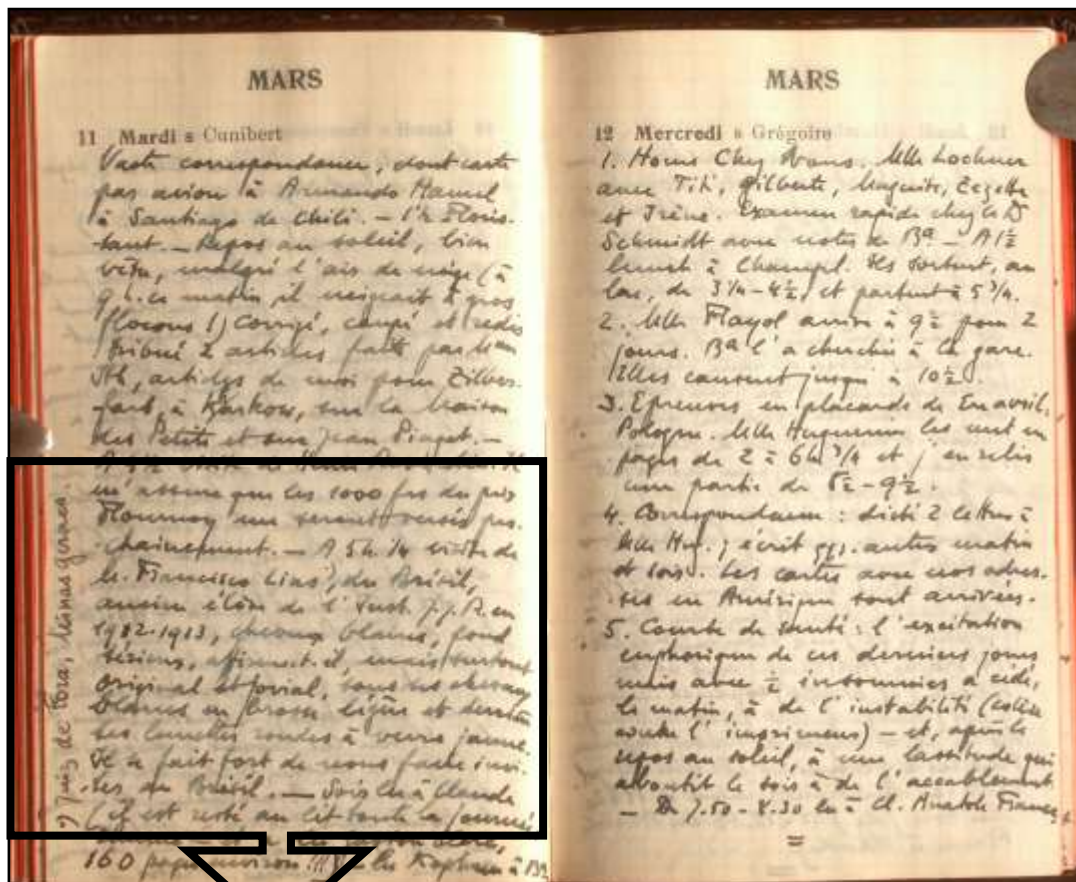 MARS
11 Mardi s Cunibert
Vaste correspondance, dont carte
par avion à Armando Hamel
à Santiago de Chili. – Floris-
sant. – Repos au soleil, bien
vêtu, malgré l'air de neige (à
9 h. ce matin il neigeait à gros
flocons !) Corrigé, coupé et redis
tribué 2 articles faits par
articles de moi pour Zilber-
farb, à Karkow, sur la Maison
des Petits et sur Jean Piaget. –
visite de
m'assure que les 1000 frs du prix
Flournoy me seront versés pro-
chainement. – A 5 h. 1/4 visite de
M. Francisco Lins⁾, du Brésil,
ancien élève de l'Inst. J.J.R. en
1912-1913, cheveux blancs, fond
sérieux, affirme-t-il, mais surtout
original et jovial, sous ses cheveux
blancs en brosse et derrière
ses lunettes rondes à verre jaune.
Il se fait fort de nous faire invi-
ter au Brésil. — Soir lu à Claude
(il est resté au lit toute la journée
160 pages environ !!!) à Ba
⁾ Juiz de Fora, Minas geraes.
MARS
12 Mercredi s Grégoire
1. Homs Chez nous. Mlle Lochner
avec Titi, Gilberte, Zezette
et Irène. Examen rapide chez le Dr
Schmidt avec notes de Ba – A 1½
lunch à Champel. Ils sortent, au
lac, de 3¼–4½, et partent à 5¾.
2. Mlle Flayol arrive à 9½ pour 2
jours. Ba l'a cherchée à la gare.
Elles causent jusqu'à 10½.
3. Epreuves en placards de En avril,
Pologne. Mlle Huguenin les met en
pages de 2 à 6h ¾ et j'en relis
une partie de 8½–9½.
4. Correspondance : dicté 2 lettres à
Mlle Hug. ; écrit qqs. autres matin
et soir. Les cartes avec nos adres-
ses en Amérique sont arrivées.
5. Courbe de santé : l'excitation
euphorique de ces derniers jours
mais avec ½ insomnies a cédé,
le matin, à de l'instabilité (colère
contre l'imprimeur) – et, après le
repos au soleil, à une lassitude qui
aboutit le soir à de l'accablement
– De 7.50–8.30 lu à Cl. Anatole France